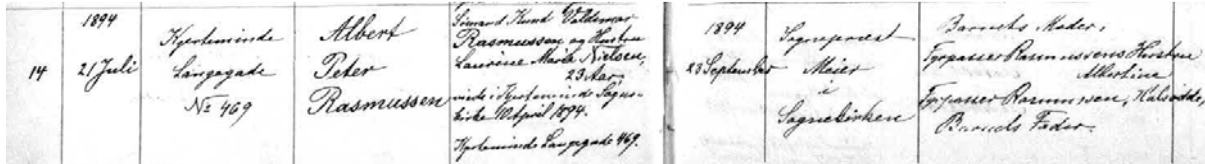 14
1894
21 Juli
Kjerteminde
Langegade
No 469
Albert
Peter
Rasmussen
Sømand Knud Valdemar
Rasmussen og Hustru
Laurine Marie Nielsen,
23 Aar,
viede i Kjerteminde Sogne-
kirke 10 April 1894.
Kjerteminde Langegade 469.
1894
23 September
Sognepræst
Meier
i
Sognekirken
Barnets Moder,
Fyrpasser Rasmussens Hustru
Albertine
Fyrpasser Rasmussen,
Barnets Fader.